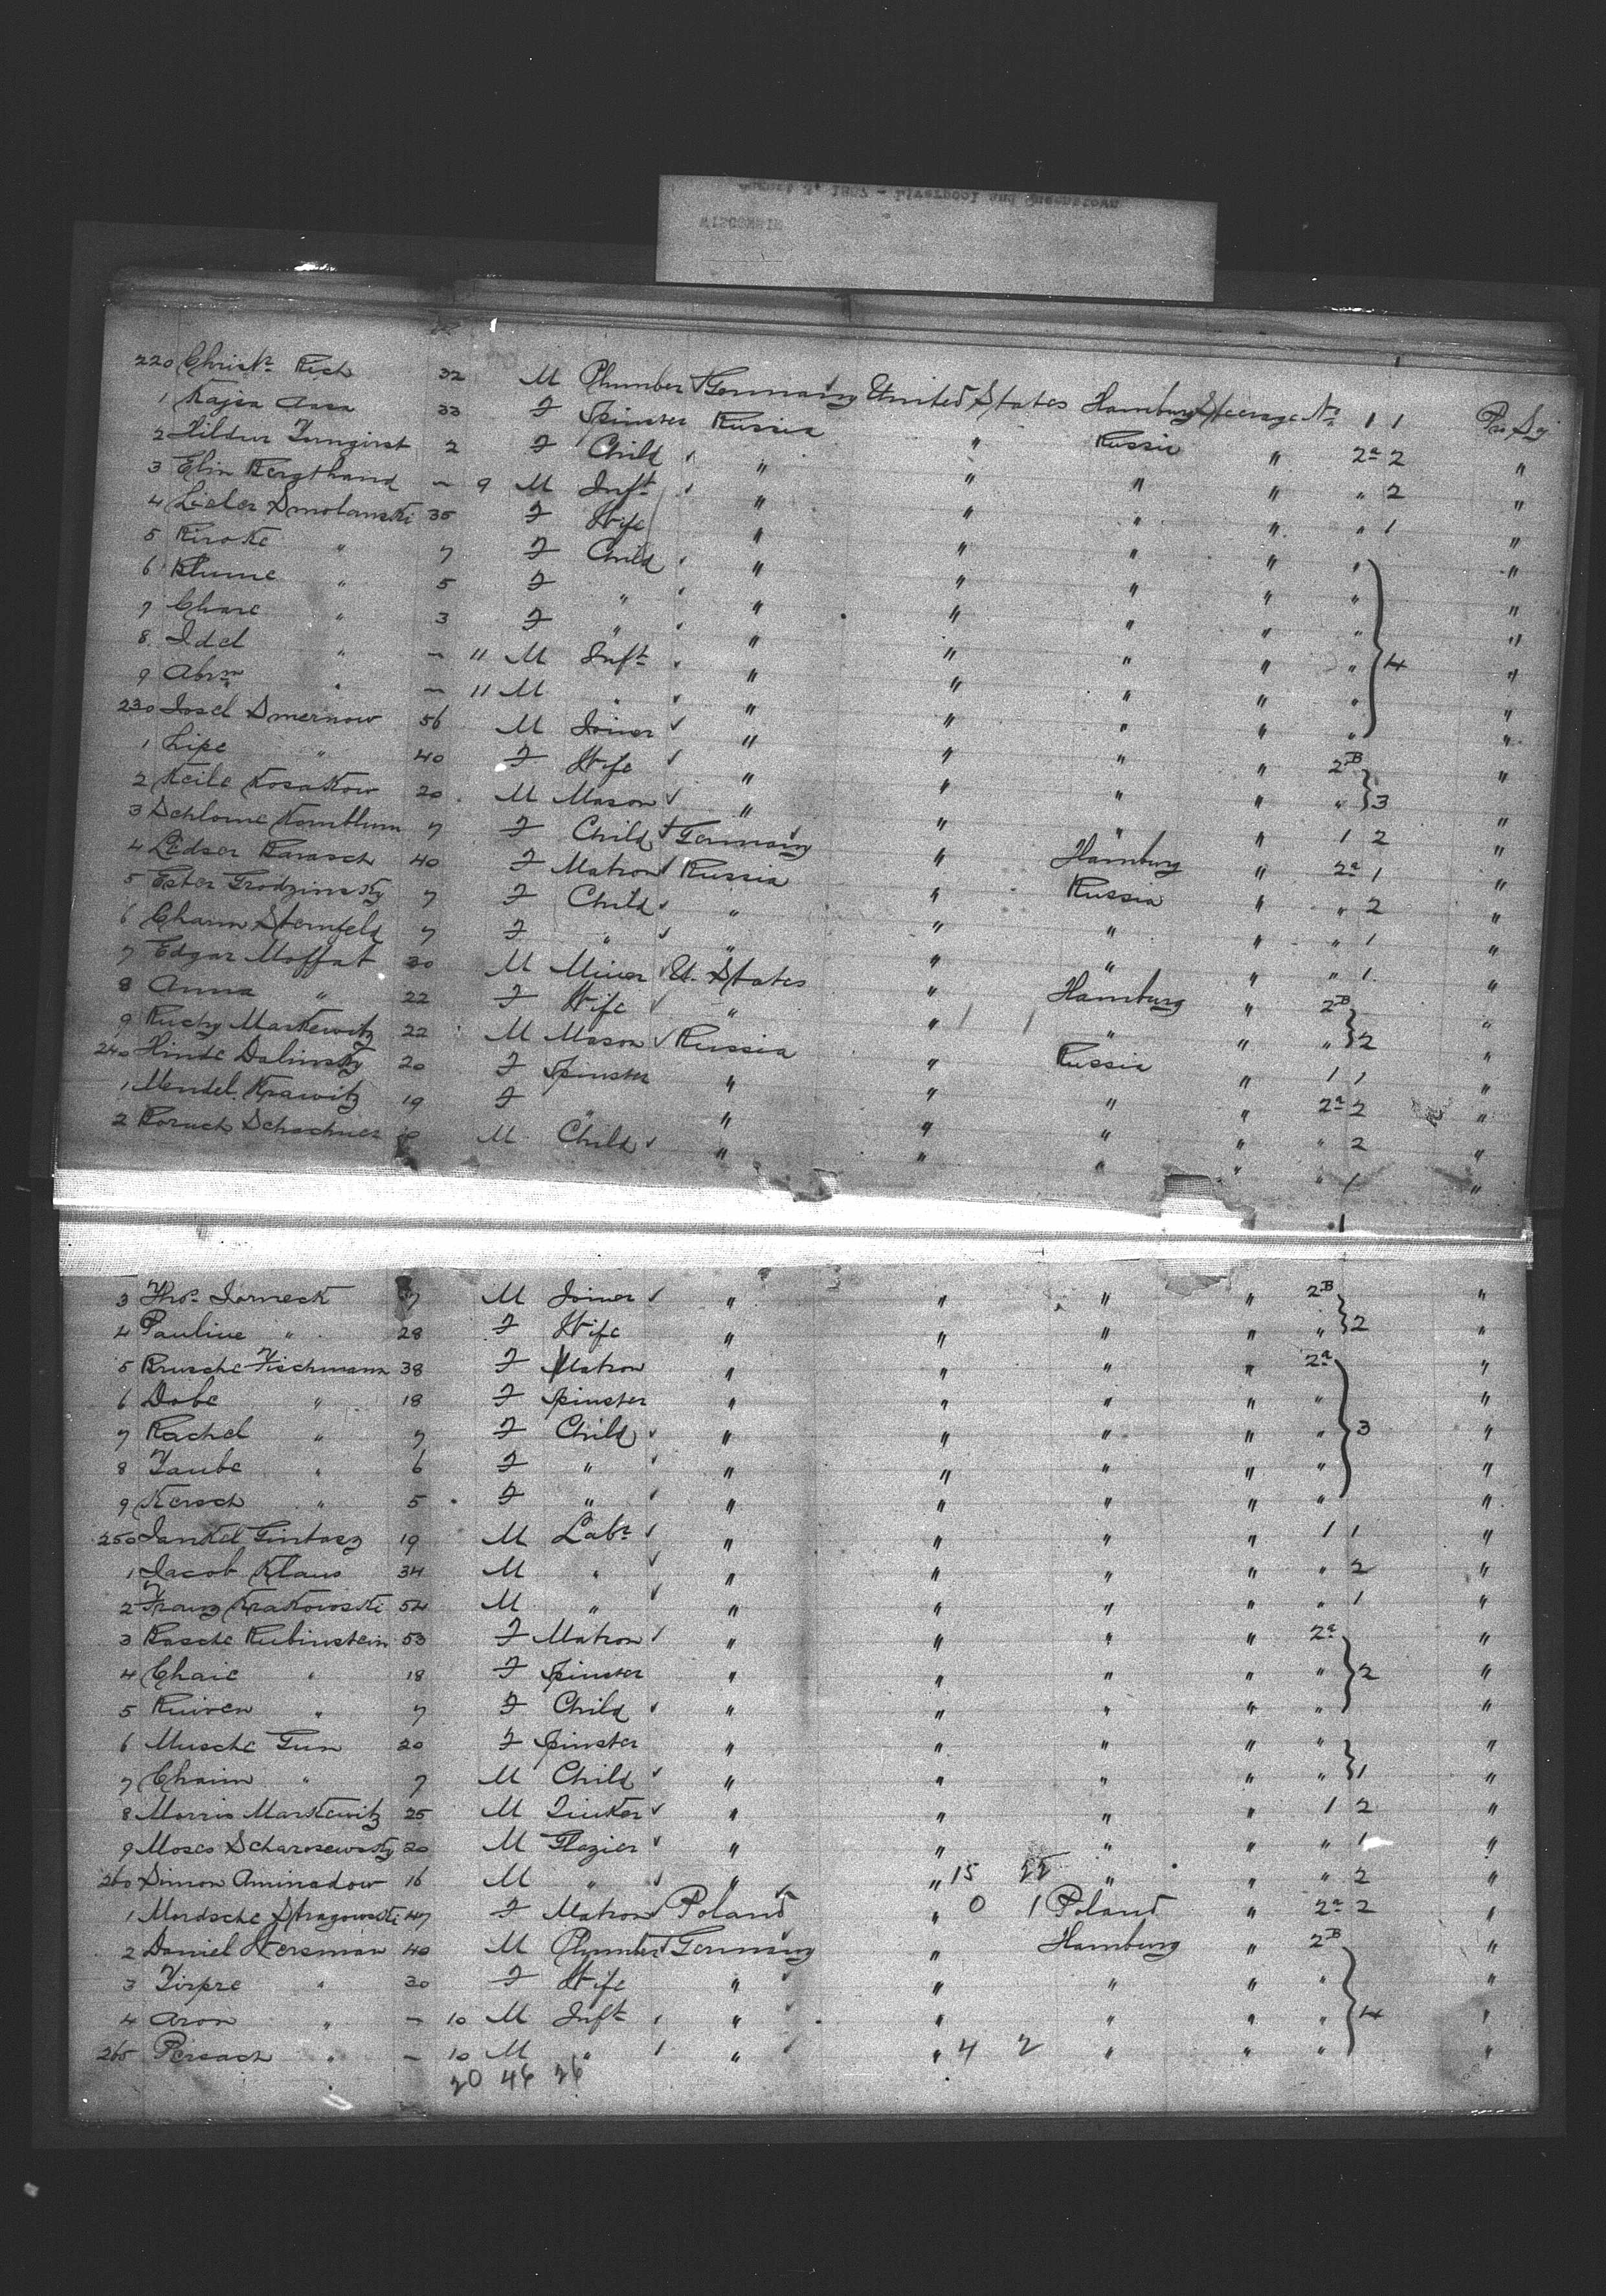 August 3, 1887 - Liverpool and Queenstown
WISCONSIN
220 Christn Rich 32 M Plumber Germany United States Hamburg Steerage No 1 1
1 Kajsa Aasa 33 F Spinster Russia " Russia " 2a 2 "
2 Hildur 2 F Child " " " " " 2 "
3 Elin - 9 M Inft " " " " " 1 "
4 Smolanski 35 F Wife " " " " " "
5 " 7 F Child " " " " " "
6 Blume " 5 F " " " " " " "
7 " 3 F " " " " " " 4 "
8 Idel " - 11 M Inft " " " " " "
9 Abrm " - 11 M " " " " " " "
230 Josel Smernow 56 M Joiner " " " " 2B "
1 Lipe " 40 F Wife " " " " " 3 "
2 Keile Kosakow 20 M Mason " " " " 1 2 "
3 Schlome Kornblum 7 F Child Germany " Hamburg " 2a 1 "
4 Barasch 40 F Matron Russia " Russia " " 2 "
5 Ester Grodzinsky 7 F Child " " " " " 1 "
6 Chaim Sternfeld 7 F " " " " " " 1 "
7 Edgar Moffat 30 M Miner U. States " Hamburg " 2B "
8 Anna " 22 F Wife " " " " " 2 "
9 Markewitz 22 M Mason Russia " Russia " 1 1 "
240 Hinde Dalinsky 20 F Spinster " " " " 2a 2 "
1 Mendel Krawitz 19 F " " " " " " 2 "
2 Boruch Schachner M Child " " " " " 1 "
3 Thos M Joiner " " " " 2B "
4 Pauline " 28 F Wife " " " " " 2 "
5 Brusche Fischmann 38 F Matron " " " " 2a "
6 Dobe " 18 F Spinster " " " " " "
7 Rachel " 7 F Child " " " " " 3 "
8 Taube " 6 F " " " " " " "
9 Kersch " 5 F " " " " " " "
250 Jankel 19 M Labr " " " " 1 1 "
1 Jacob Klaus 34 M " " " " " " 2 "
2 Franz Krakowski 54 M " " " " " " 1 "
3 Rasche Rubinstein 53 F Matron " " " " 2a "
4 Chaie " 18 F Spinster " " " " " 2 "
5 Ruiven " 7 F Child " " " " " "
6 Musche Gun 20 F Spinster " " " " " "
7 Chaim " 7 M Child " " " " " 1 "
8 Morris Markewitz 25 M Tinker " " " " 1 2 "
9 Moses 20 M Glazier " " " " " 1 "
260 Simon Aminadow 16 M " " " 15 22 " " " 2 "
1 Mordsche Stragowski 47 F Matron Poland " 0 1 Poland " 2a 2 "
2 Daniel Hersman 40 M Plumber Germany " Hamburg " 2B "
3 " 30 F Wife " " " " " "
4 Aron " - 10 M Inft " " " " " 4 "
265 " - 10 M " " " 4 2 " " " "
20 46 26